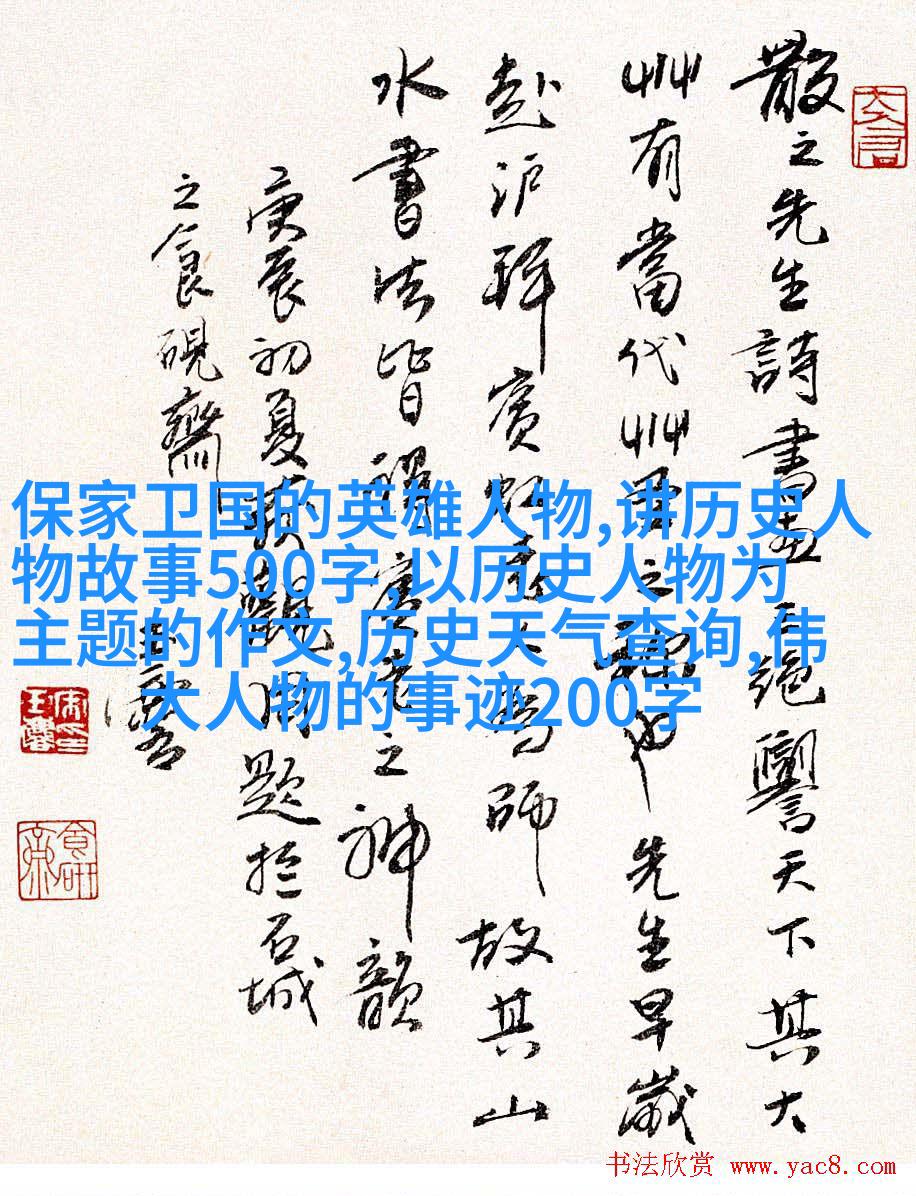 散之先生詩書畫三絕譽天下其大
艸有當代艸聖之稱也先生早歲
赴沪拜賓虹大師故其山
水書法皆得賓老之神韻
庚辰初夏拜觀因題於石城
之食硯齋
保家卫国的英雄人物,讲历史人
物故事500字,以历史人物为
主题的作文,历史天气查询,伟
大人物的事迹200字
书法欣赏 www.yac8.com